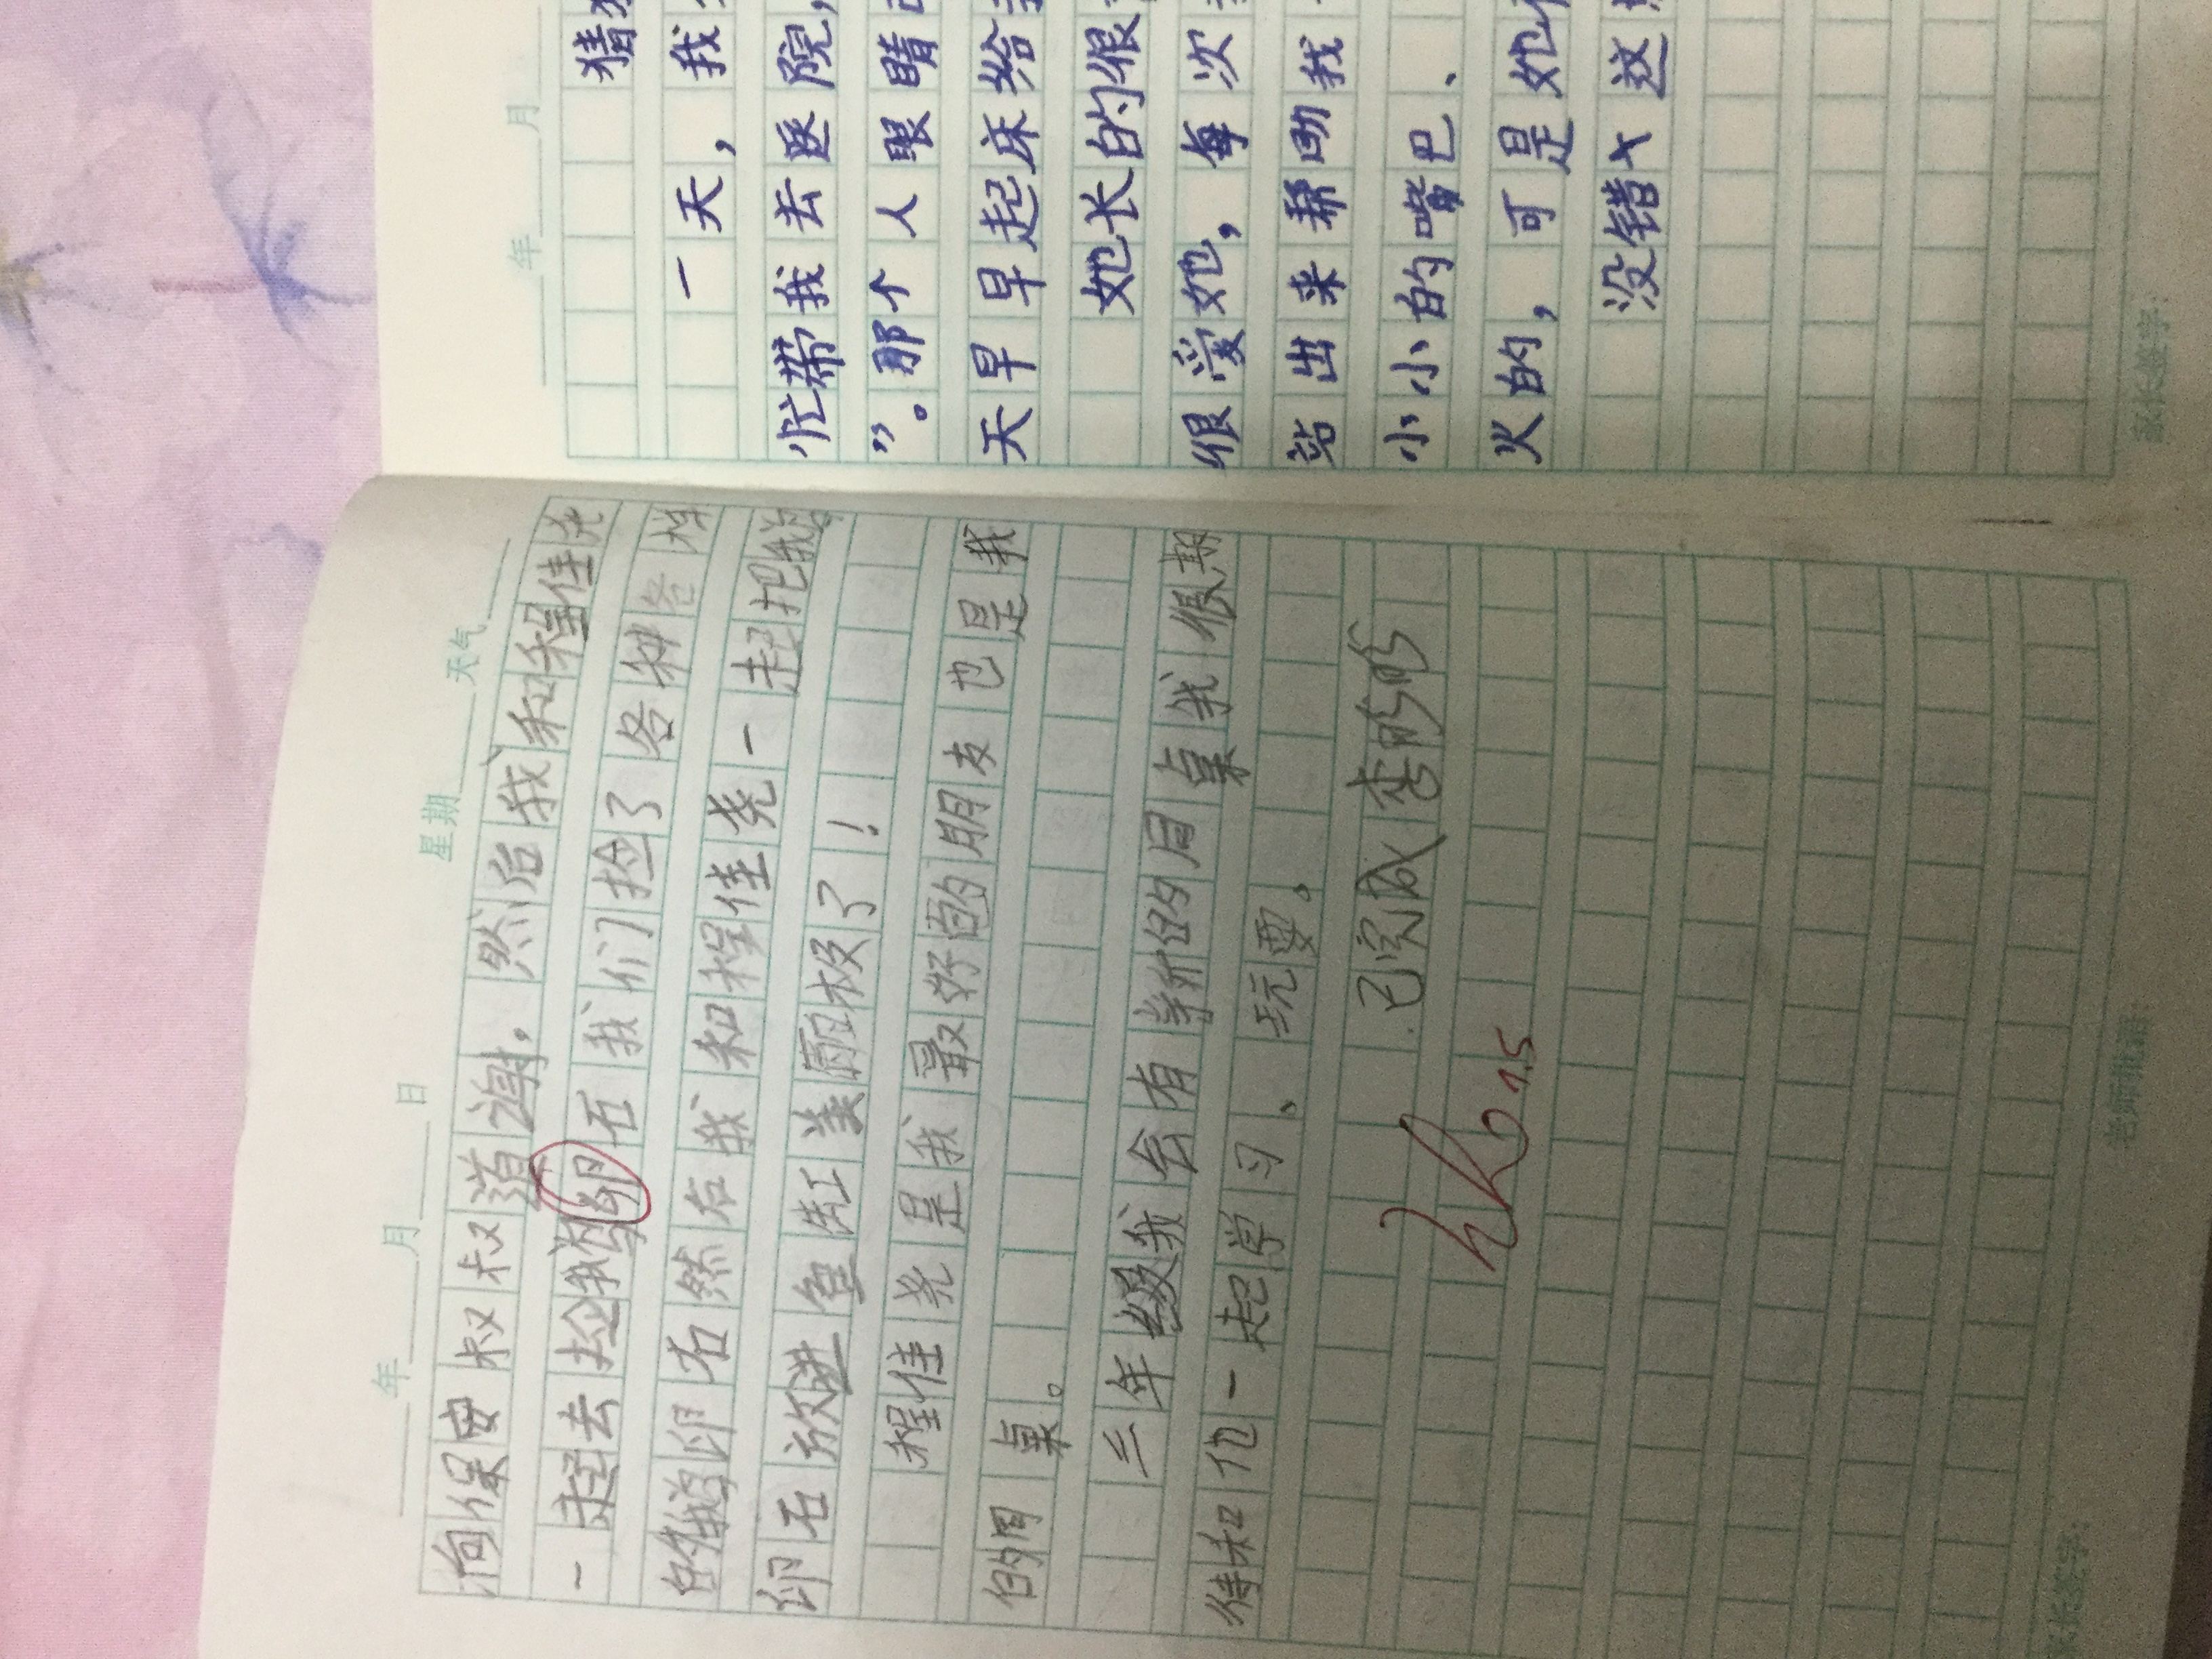 年 月 日 星期 天气
向保安叔叔道谢，然后我和程佳尧
一起去捡鹅卵石我们捡了各种各样
的鹅卵石然后我和程佳尧一起把鹅
卵石放进鱼缸美丽极了！
程佳尧是我最好的朋友也是我
的同桌。
三年级我会有新的同桌我很期
待和他一起学习、玩耍。
已完成
hh 7.5
家长签字:
老师批语:
年 月
猜猜
一天，我
忙带我去医院，
”。那个人眼睛
天早早起床给
她长的很
很爱她，每次
站出来帮助我
小小的嘴巴、
火的，可是她
没错 这
家长签字: